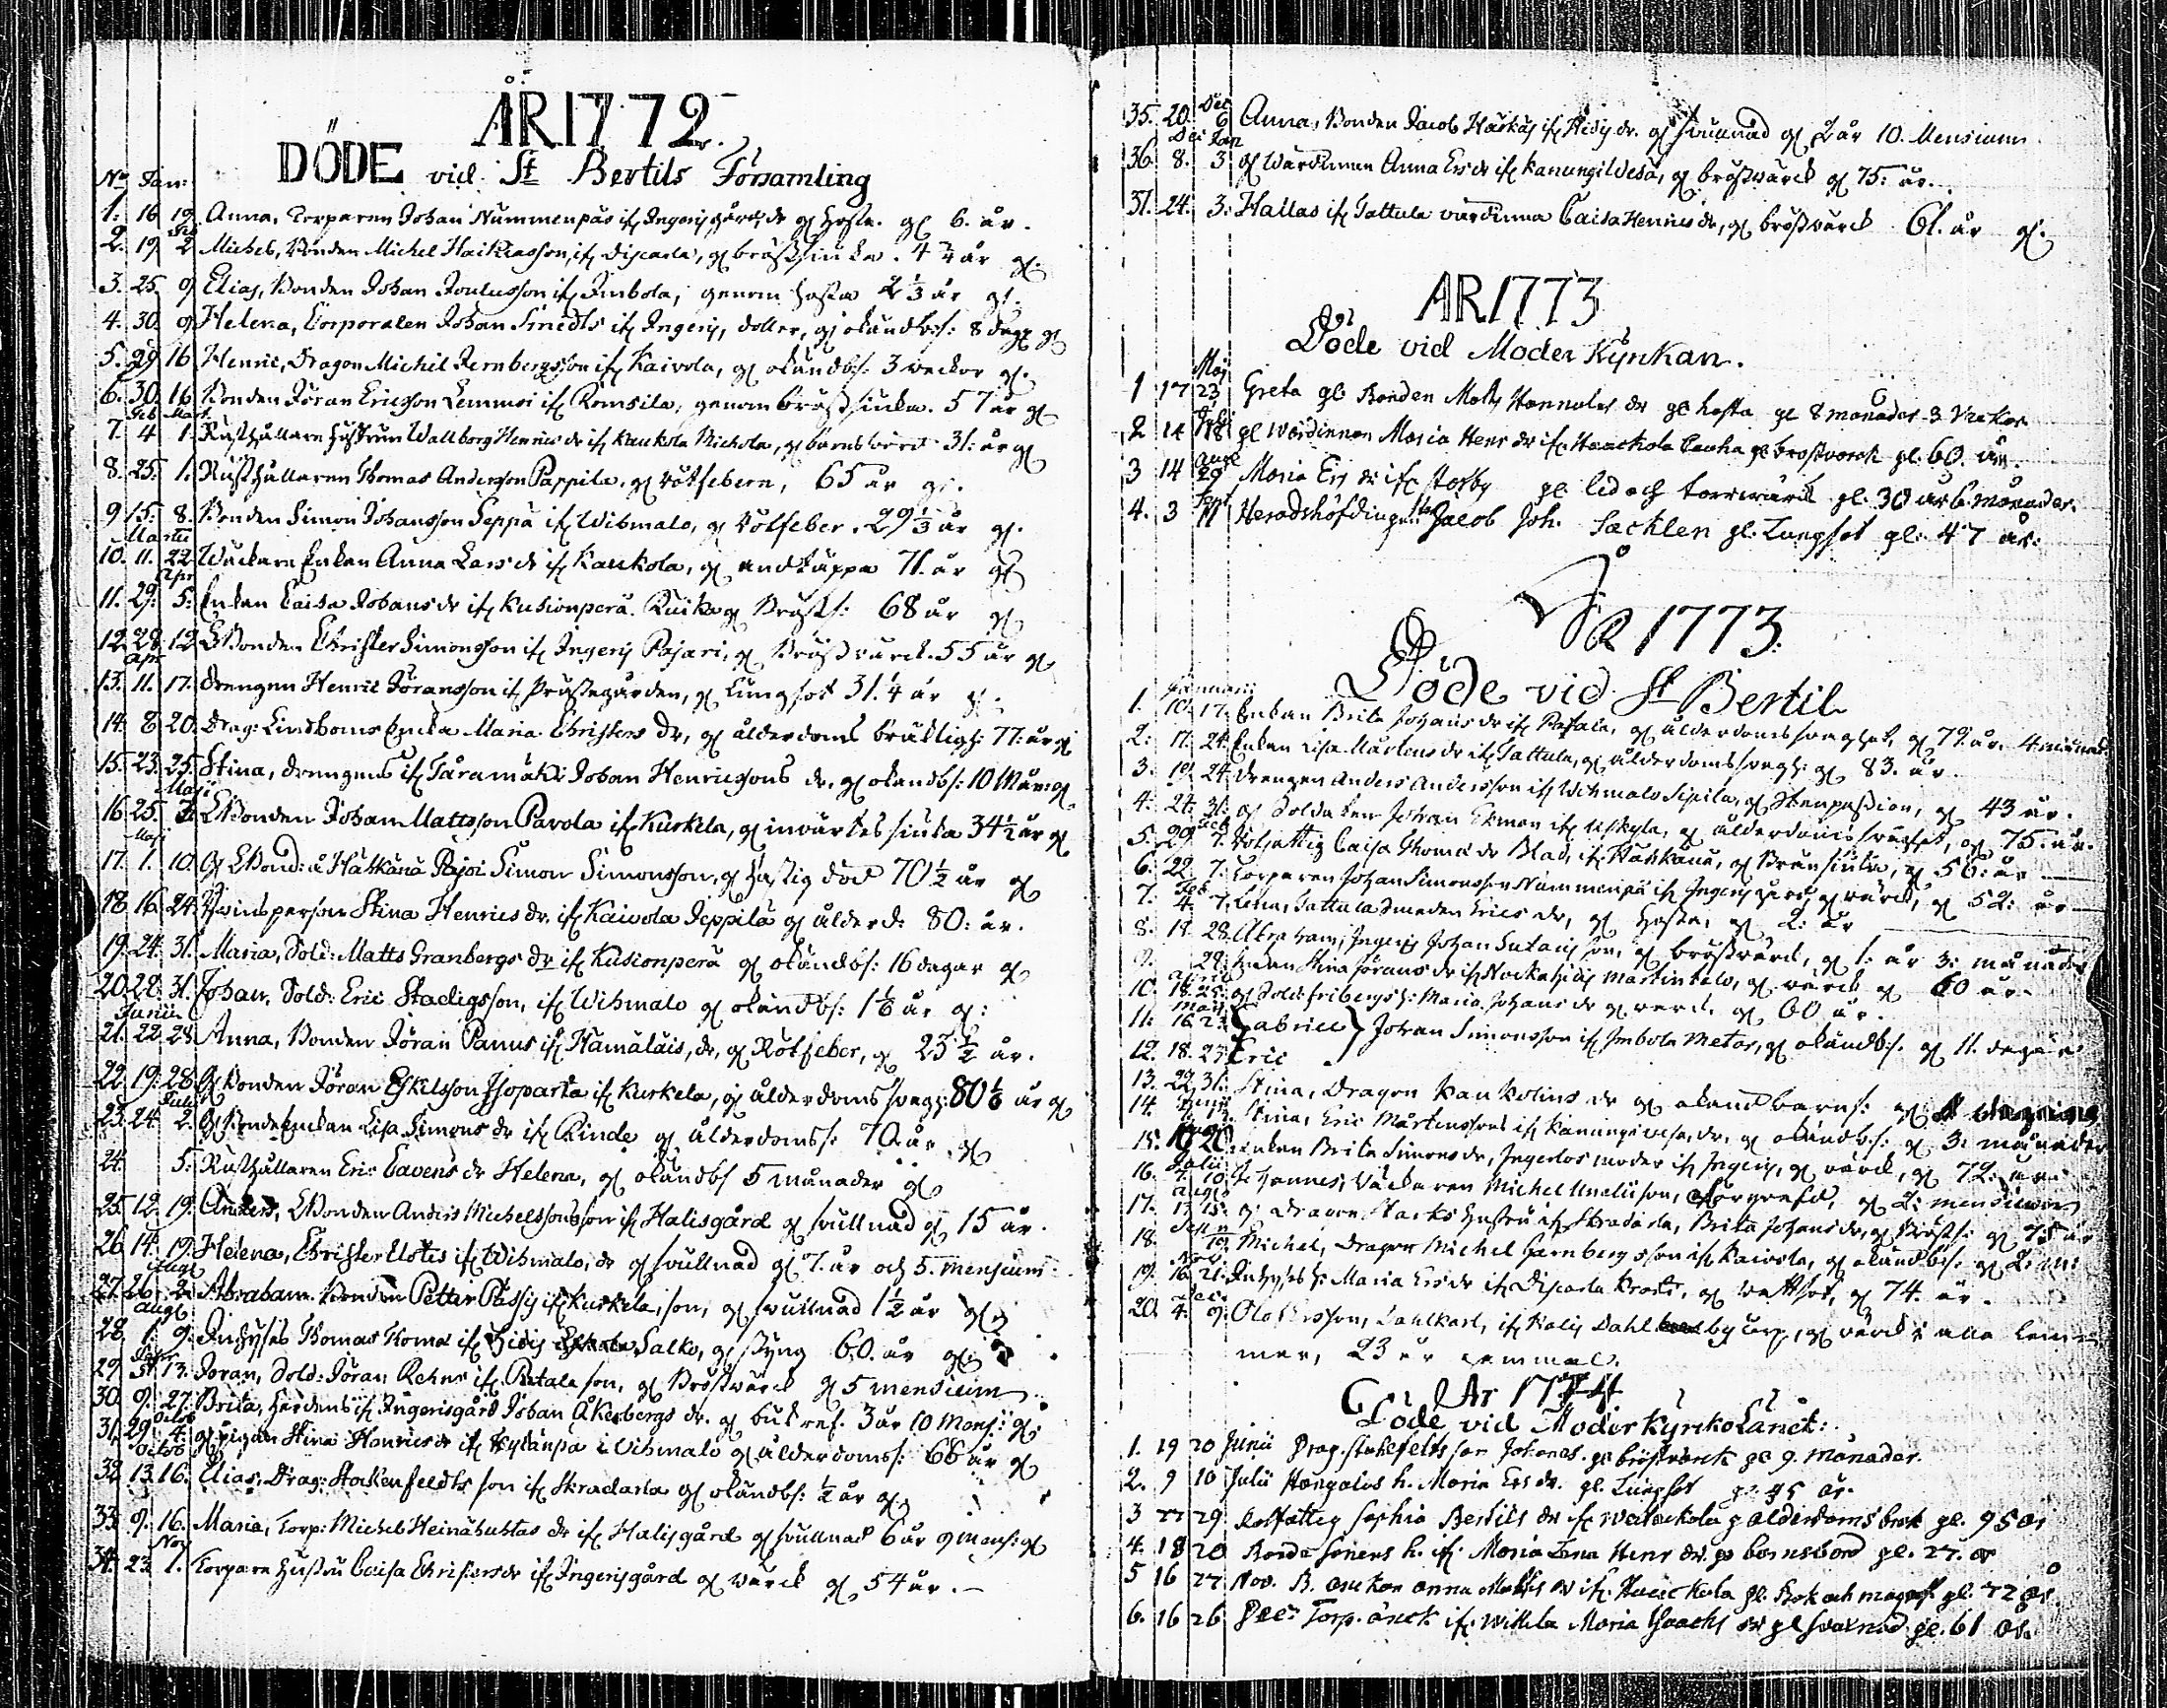 ÅR 1772.
DÖDE vid St Bertils Församling
No Jan:
1. 16 19 Anna, Torparen Johan Nummenpäs if Ingerisgård, dr gl hosta. gl 6. år.
Feb
2. 19 2 Michel, Bonden Michel Haikkiasson, if Discarla, gl bröstsiuka. 4 år gl.
3. 25. 9 Elias, Bonden Johan Joulusson if Imbola, genom hosta 2 1/3 år gl.
4. 30. 9 Helena, Corporalen Johan Smedts if Ingeris, dotter, gl okändbs: 8 dagr gl
5. 29 16 Henric, Dragon Michel Jernbergsson if Kaivola, gl okändbs: 3 weckor gl.
6. 30. 16 Bonden Jöran Ericsson Lemmoi if Romsila, genom bröstsiuka. 57 år gl
Feb Mart.
7. 4 1. Rusthållare hustrun Wallborg Henrics dr if Kaukola Nichola, gl barnsbörd 31: år gl
8. 25. 1. Rusthållaren Thomas Andersson Pappila, gl rötfebern, 65 år gl.
9 15: 8. Bonden Simon Johansson Seppä if Wihmalo, gl Rötfeber. 29 1/3 år gl.
Martii
10. 11. 22 Wäckare Enkan Anna Lars dr if Kaukola, gl andtäppa 71. år gl
Apr
11. 29. 5: Enkan Caisa Johans dr if Kusionperä gl Bröst: 68 år gl
12. 28. 12 Bonden Christer Simonsson if Ingeris Pajari, gl Bröstvärck. 55 år gl
Apr
13. 11. 17. Drengen Henric Jöransson if Prästegården, gl Lungsot 31. 1/4 år gl.
14. 8 20. Drag: Lindboms Encka Maria Christers dr, gl ålderdoms bräkligh: 77: år gl
15. 23. 25. Stina, drengens if Tåramäki Johan Henricsons dr, gl okändbs: 10 Mån: gl
Maji
16 25. 3 Bonden Johan Mattsson Pavola if Kurkela, gl invärtes siuka 34 1/2 år gl
Maji
17. 1. 10. Gl Bond: å Hätkänä Pajoi Simon Simonsson, gl hastig död 70 1/2 år gl
18. 16. 24. Qwinsperson Stina Henrics dr. if Kaivola Jeppilä gl ålderd: 80: år.
19. 24. 31. Maria, Sold: Matts Granbergs dr if Kusionperä gl okändbs: 16 dagar gl
20. 28. 31. Johan, Sold: Eric Stadigsson, if Wihmalo gl okändbs: 1 år gl:
Junii
21. 22 28 Anna, Bonden Jöran Panus if Hämäläis, dr, gl Rötfeber, gl 23 1/2 år.
22. 19. 28 Gl Bonden Jöran Eskelsson Isoparta if Kurkela, gl ålderdoms svagh: 80 år gl
Julii
23. 24 2. Gl BondeEnkan Lisa Simons dr if Rinde gl ålderdomss: 70. år gl
24. 5: Rusthållaren Eric Cavens dr Helena, gl okändbs 5 månader gl
25. 12. 19. Anders, Bonden Anders Michelssons son if Halisgård gl svullnad gl 15 år.
26. 14. 19. Helena, Christer Uotis if Wihmalo, dr gl svullnad gl 7. år och 5. mensium:
Aug
27. 26 2. Abraham. Bonden Petter Pässis if Kurkela, son, gl svullnad 1 1/2 år gl
Aug
28. 1. 9. Inhyses Thomas Thoma if Hidis Salko, gl styng 60. år gl.
29 13. Joran, Sold: Jöran Rehns if Petala son, gl Bröstvärck gl 5 mensium
30. 9. 27. Brita, herdens if Ingerisgård Johan Åkerbergs dr. gl bukref. 3 år 10 Mons: gl.
Octob
31. 29. 4. gl pigan Stina Henrics dr if Kylänpä i Wihmalo gl ålderdoms: 66 år gl
Octob
32. 13. 16. Elias, Drag: Stakenfeldts son if Skradarla gl okändbs: 1/2 år gl
33. 9. 16. Maria, Torp: Michel Heinäsuhtas dr if Halisgård gl svullnad 6 år 9 mens: gl
Nov
34. 23. 1. Torpare hustru Caisa Christers dr if Ingerisgård gl wärck gl 54 år.
Dec
35. 20. 6 Anna, Bonden Jacob Häskäs if Hidis dr. gl svullnad gl 2 år 10. Mensium
Dec Jan
36. 8. 3 gl Wärdinnan Anna Ers dr if Kanungiwesä, gl bröstwärck gl 75: år.
37. 24. 3: Hallas if Tattula värdinna Caisa Henrics dr, gl bröstvärck 61. år gl.
AR 1773
Döde vid Moder Kyrkan.
Maj
1 17 23 Greta gl: Bonden Matts Hannulas dr gl hosta gl 8 månader 3 Veckor
2 14 18 gl wärdinnan Maria Henr dr if Haackola gl brostvarck gl. 60. år.
Aug
3 14 29 Maria Ers dr if Storby gl led och torrwärck gl. 30 år 6. månader.
Sept
4. 3 11 Heradshöfdingen Jacob Joh. Sacklen gl. Lungsot gl: 47 år.
ÅR 1773.
Döde vid St Bertil
Januari
1. 10. 17. Enkan Brita Johans dr if Pesala, gl ålderdoms svaghet, gl 79. år. 4 månad
2: 17. 24. Enkan Lisa Mårtens dr if Tattula, gl ålderdoms svagh: gl 83. år
3. 19. 24. Drengen Anders Andersson if Wihmalo Sipila, gl Stenpassion, gl 43 år.
4: 24. 31. gl Soldaten Johan Ekman if Uskyla, gl ålderdoms svaghet, gl 75. år.
5. 29 7. Rotfattig Caisa Thomæ dr Blad, if Hätkänä, gl Brunsiuka, gl 56: år
6. 22. 7. Torparen Johan Simonsson Nummenpä if Ingerisgård, gl värck, gl 52: år
Feb
7. 4. 7. Lena, Tattula Smeden Erics dr, gl hosta, gl 2: år
8. 19 28 Abraham, Ingeris Johan Sutaris son, gl bröstvärck, gl 1: år 3: månader
9. 29: Enkan Stina Jörans dr if Nackapäis Martinkelo, gl värck gl 60 år.
April
10. 18. 25. gl Sold: fribergs h: Maria Johans dr gl värck. gl 60 år.
Maji
11. 16. 23. Gabriel } Johan Simonsson if Imbola Metas, gl okändbs. gl 11. dagar
12. 18. 23. Eric
13. 22 31. Stina, Dragon Kankolins dr gl okänd barns: gl
Junii
14. Stina, Eric Mårtenssons if Kanungiwesa, dr, gl okändbs: gl 3: månader
15. 10 20. Enkan Brita Simons dr, Ingerlos moder if Ingeris, gl värck, gl 72. år
Julii
16. 4. 10. Johannes, Väckaren Michel son, gl 2: mensium
Augs
17. 13 15. gl Dragon Starks hustru if Skradarla, Brita Johans dr, gl Bröst: gl 75 år
18. 19. Michel, Dragon Michel Jernbergs son if Kaivola, gl okändbs: gl
Nov
19. 16. 21. Inhyses h: Maria Ers dr if Discarla Krosti, gl wattsot, gl 74. år.
Dec
20. 4: 9. Olof Ersson, Dahlkarl, if Kalis Dahlby torp, gl värck i alla lem-
mer, 23 år gammal.
År 1774
Döde vid Moder kyrkolanet:
1. 19 20 Junii Drag. Stahlfelts son Johanes. gl bröstwärck gl 9. månader.
2. 9 10 Julii Hangalos h. Maria Ers dr. gl. Lungsot gl. 45 år.
3 27 29 Rotfattig Sophia Bertils dr if Weitackola gl alderdoms brok gl. 95 år
4. 18 20 Bonde soners h. if Maria Lena Henr dr. gl barnsbörd gl. 27. år
5 16 27 Nov. B. Anna Matts dr if Haackola gl. Brok och gl. 72 år.
6. 16 26 Dec: Torp. änck if Wittila Maria Isaachs dr gl svalnad gl. 61 år.